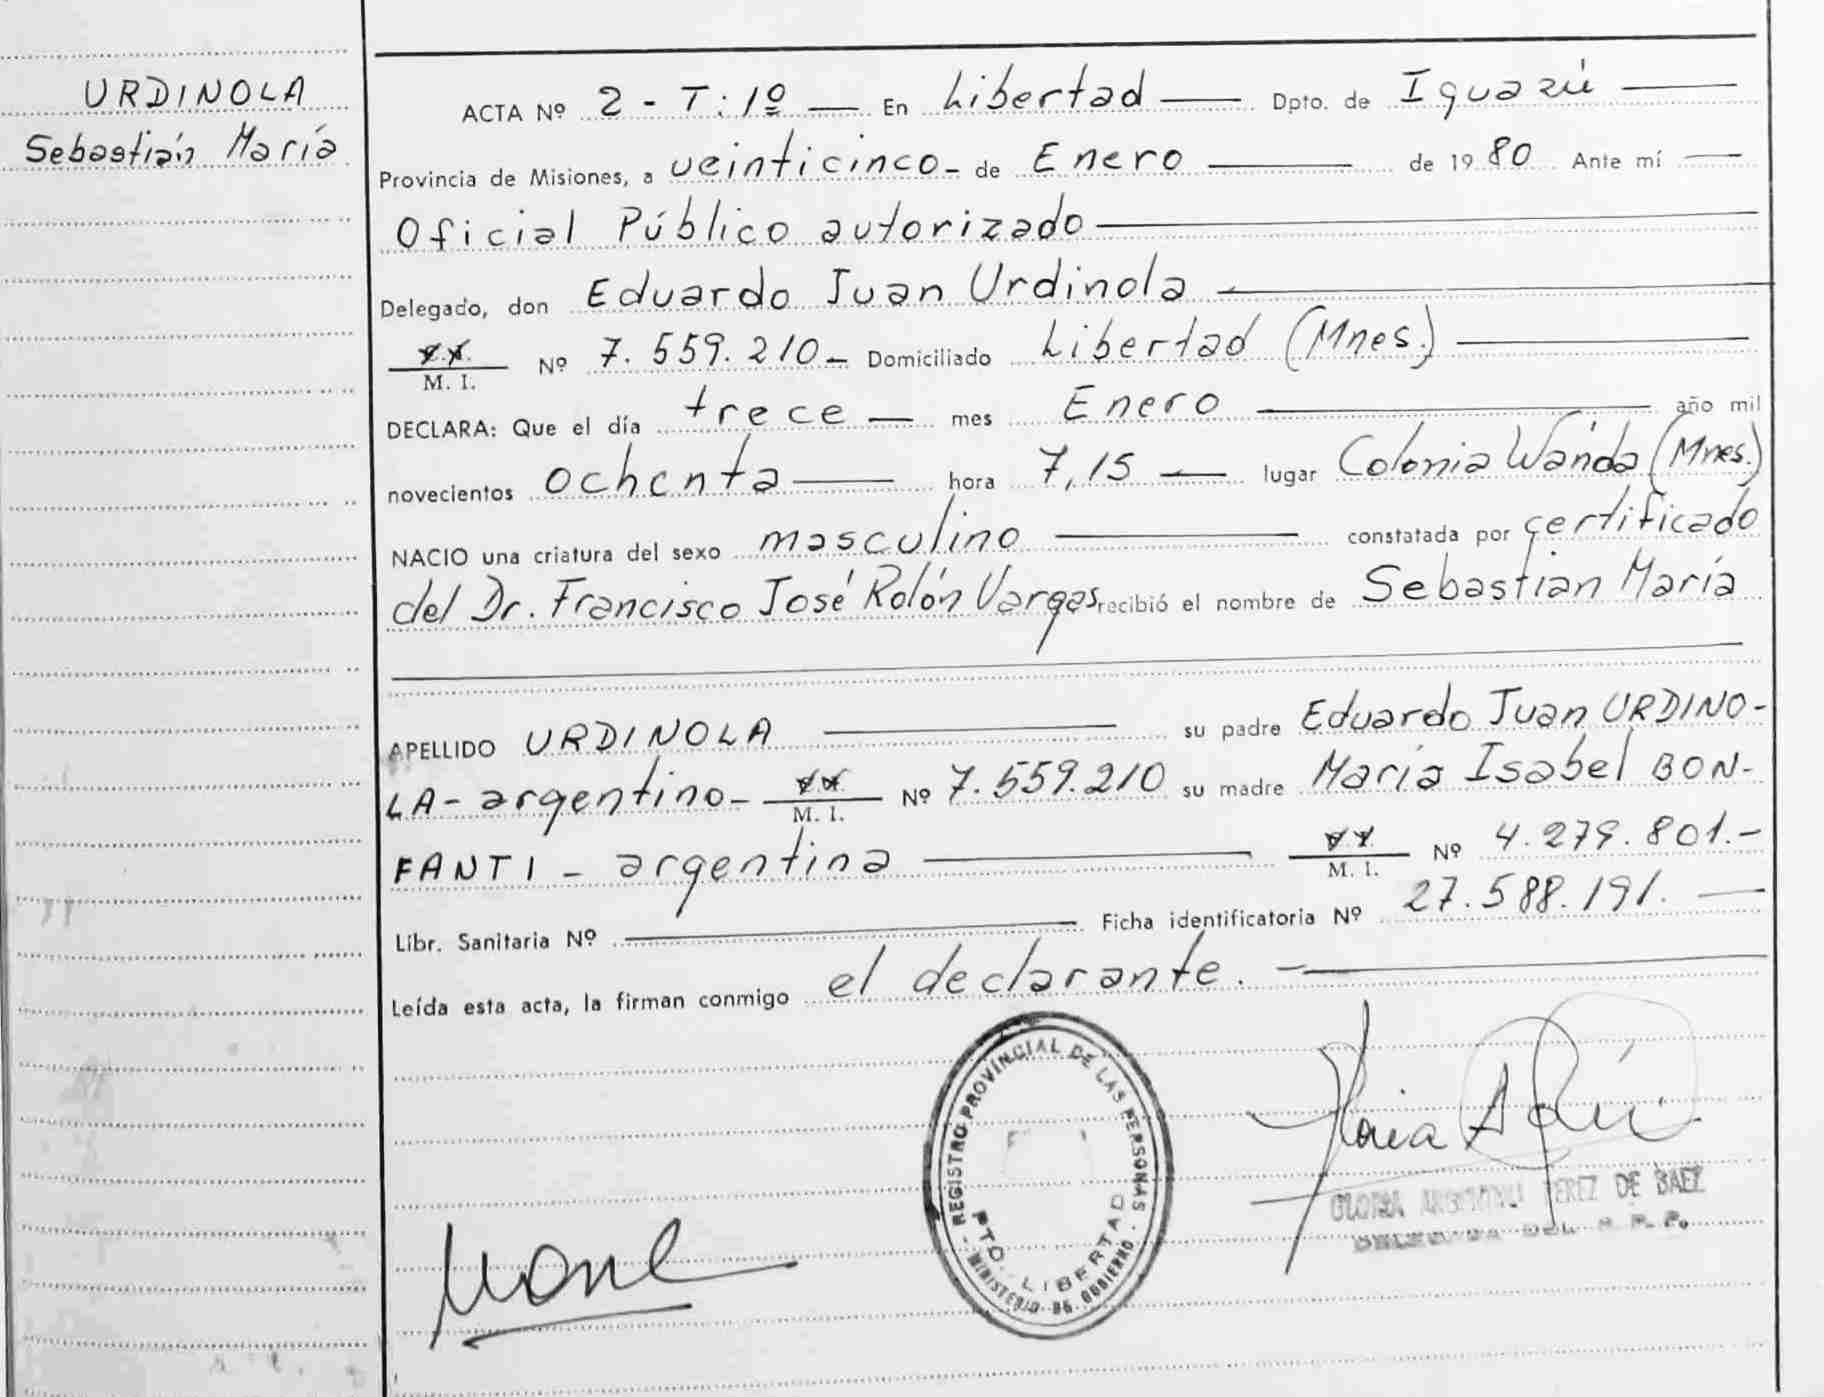 URDINOLA
Sebastián María
ACTA Nº 2 - T: 1º — En Libertad — Dpto. de Iguazú —
Provincia de Misiones, a veinticinco - de Enero — de 1980 Ante mí —
Oficial Público autorizado —
Delegado, don Eduardo Juan Urdinola —
M. I. Nº 7.559.210 - Domiciliado Libertad (Mnes.) —
DECLARA: Que el día trece — mes Enero — año mil
novecientos ochenta — hora 7,15 — lugar Colonia Wanda (Mnes.)
NACIO una criatura del sexo masculino — constatada por certificado
del Dr. Francisco José Rolón Vargas recibió el nombre de Sebastián María
APELLIDO URDINOLA — su padre Eduardo Juan URDINO-
LA - argentino - M. I. Nº 7.559.210 su madre María Isabel BON-
FANTI - argentina — M. I. Nº 4.279.801.-
Libr. Sanitaria Nº — Ficha identificatoria Nº 27.588.191. —
Leída esta acta, la firman conmigo el declarante. -
REGISTRO PROVINCIAL DE LAS PERSONAS
PTO. LIBERTAD
MINISTERIO DE GOBIERNO
GLORIA PEREZ DE BAEZ